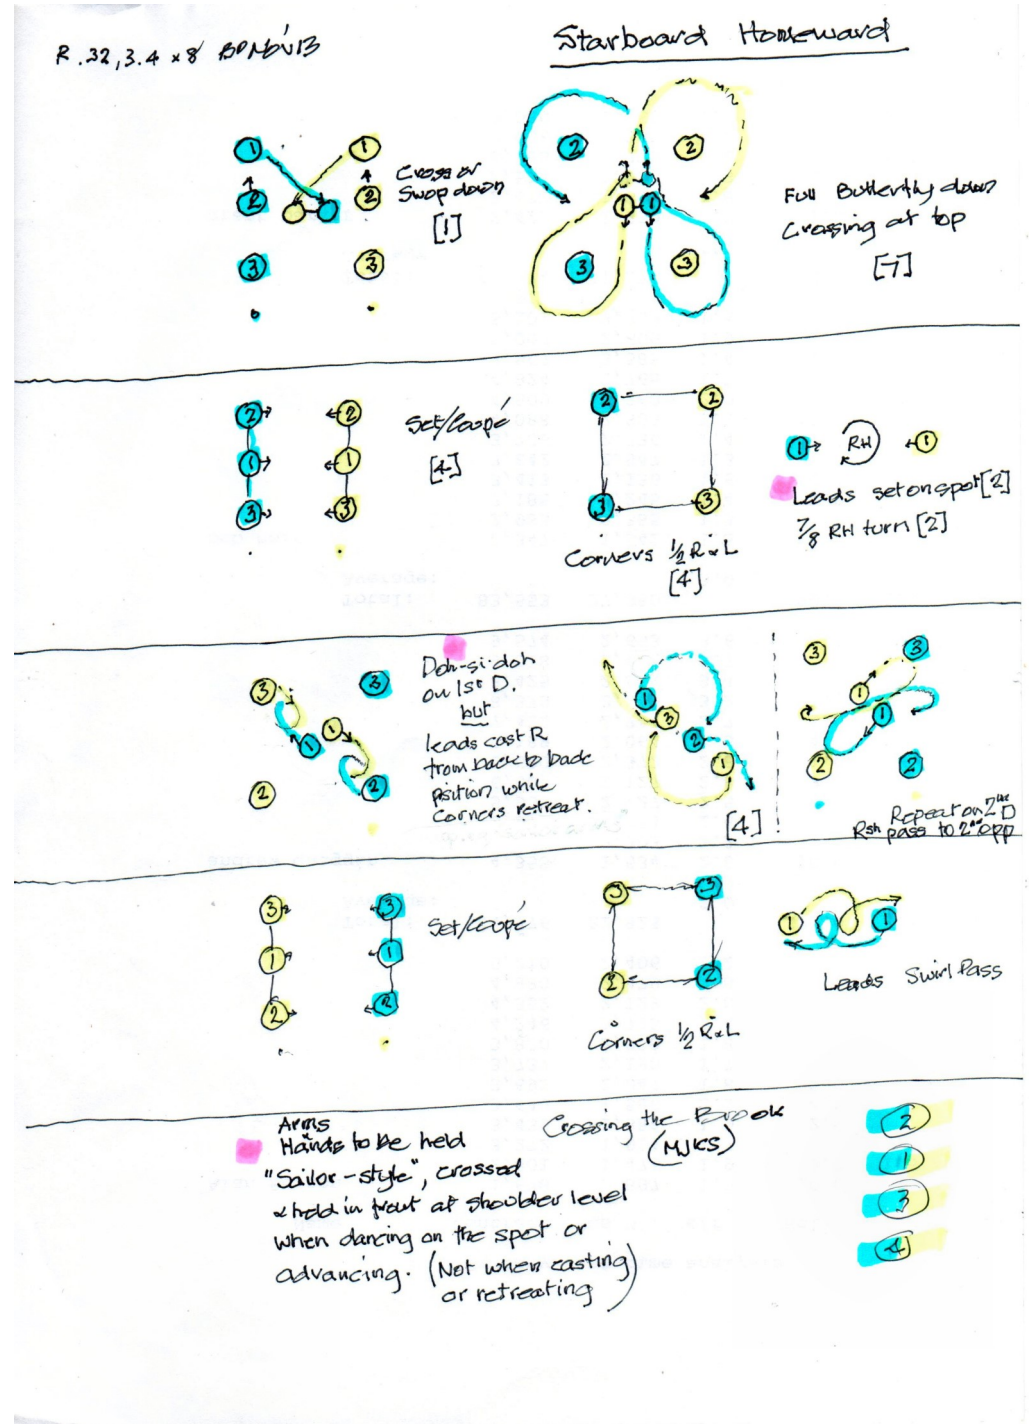 R.32,3.4 x 8 BDNov13
Starboard Homeward
1 1
Cross or
Swop down
[1]
2 2
3 3
2 2
1 1
3 3
Full Butterfly down
Crossing at top
[7]
2 2
1 1
3 3
Set/Coupé
[4]
2 2
3 3
Corners ½ R&L
[4]
1 RH 1
Leads set on spot [2]
7/8 RH turn [2]
3 3
1 1
2 2
Doh-si-doh
on 1st D.
but
leads cast R
from back to back
position while
Corners retreat.
1
3
2
1
[4]
3 3
1
1
2 2
Repeat on 2nd D
Rsh pass to 2nd opp
3 3
1 1
2 2
Set/Coupé
3 3
2 2
Corners ½ R&L
1 1
Leads Swirl Pass
Arms
Hands to be held
"Sailor-style", crossed
& held in front at shoulder level
when dancing on the spot or
advancing. (Not when casting
or retreating)
Crossing the Brook
(MJKS)
2
1
3
4